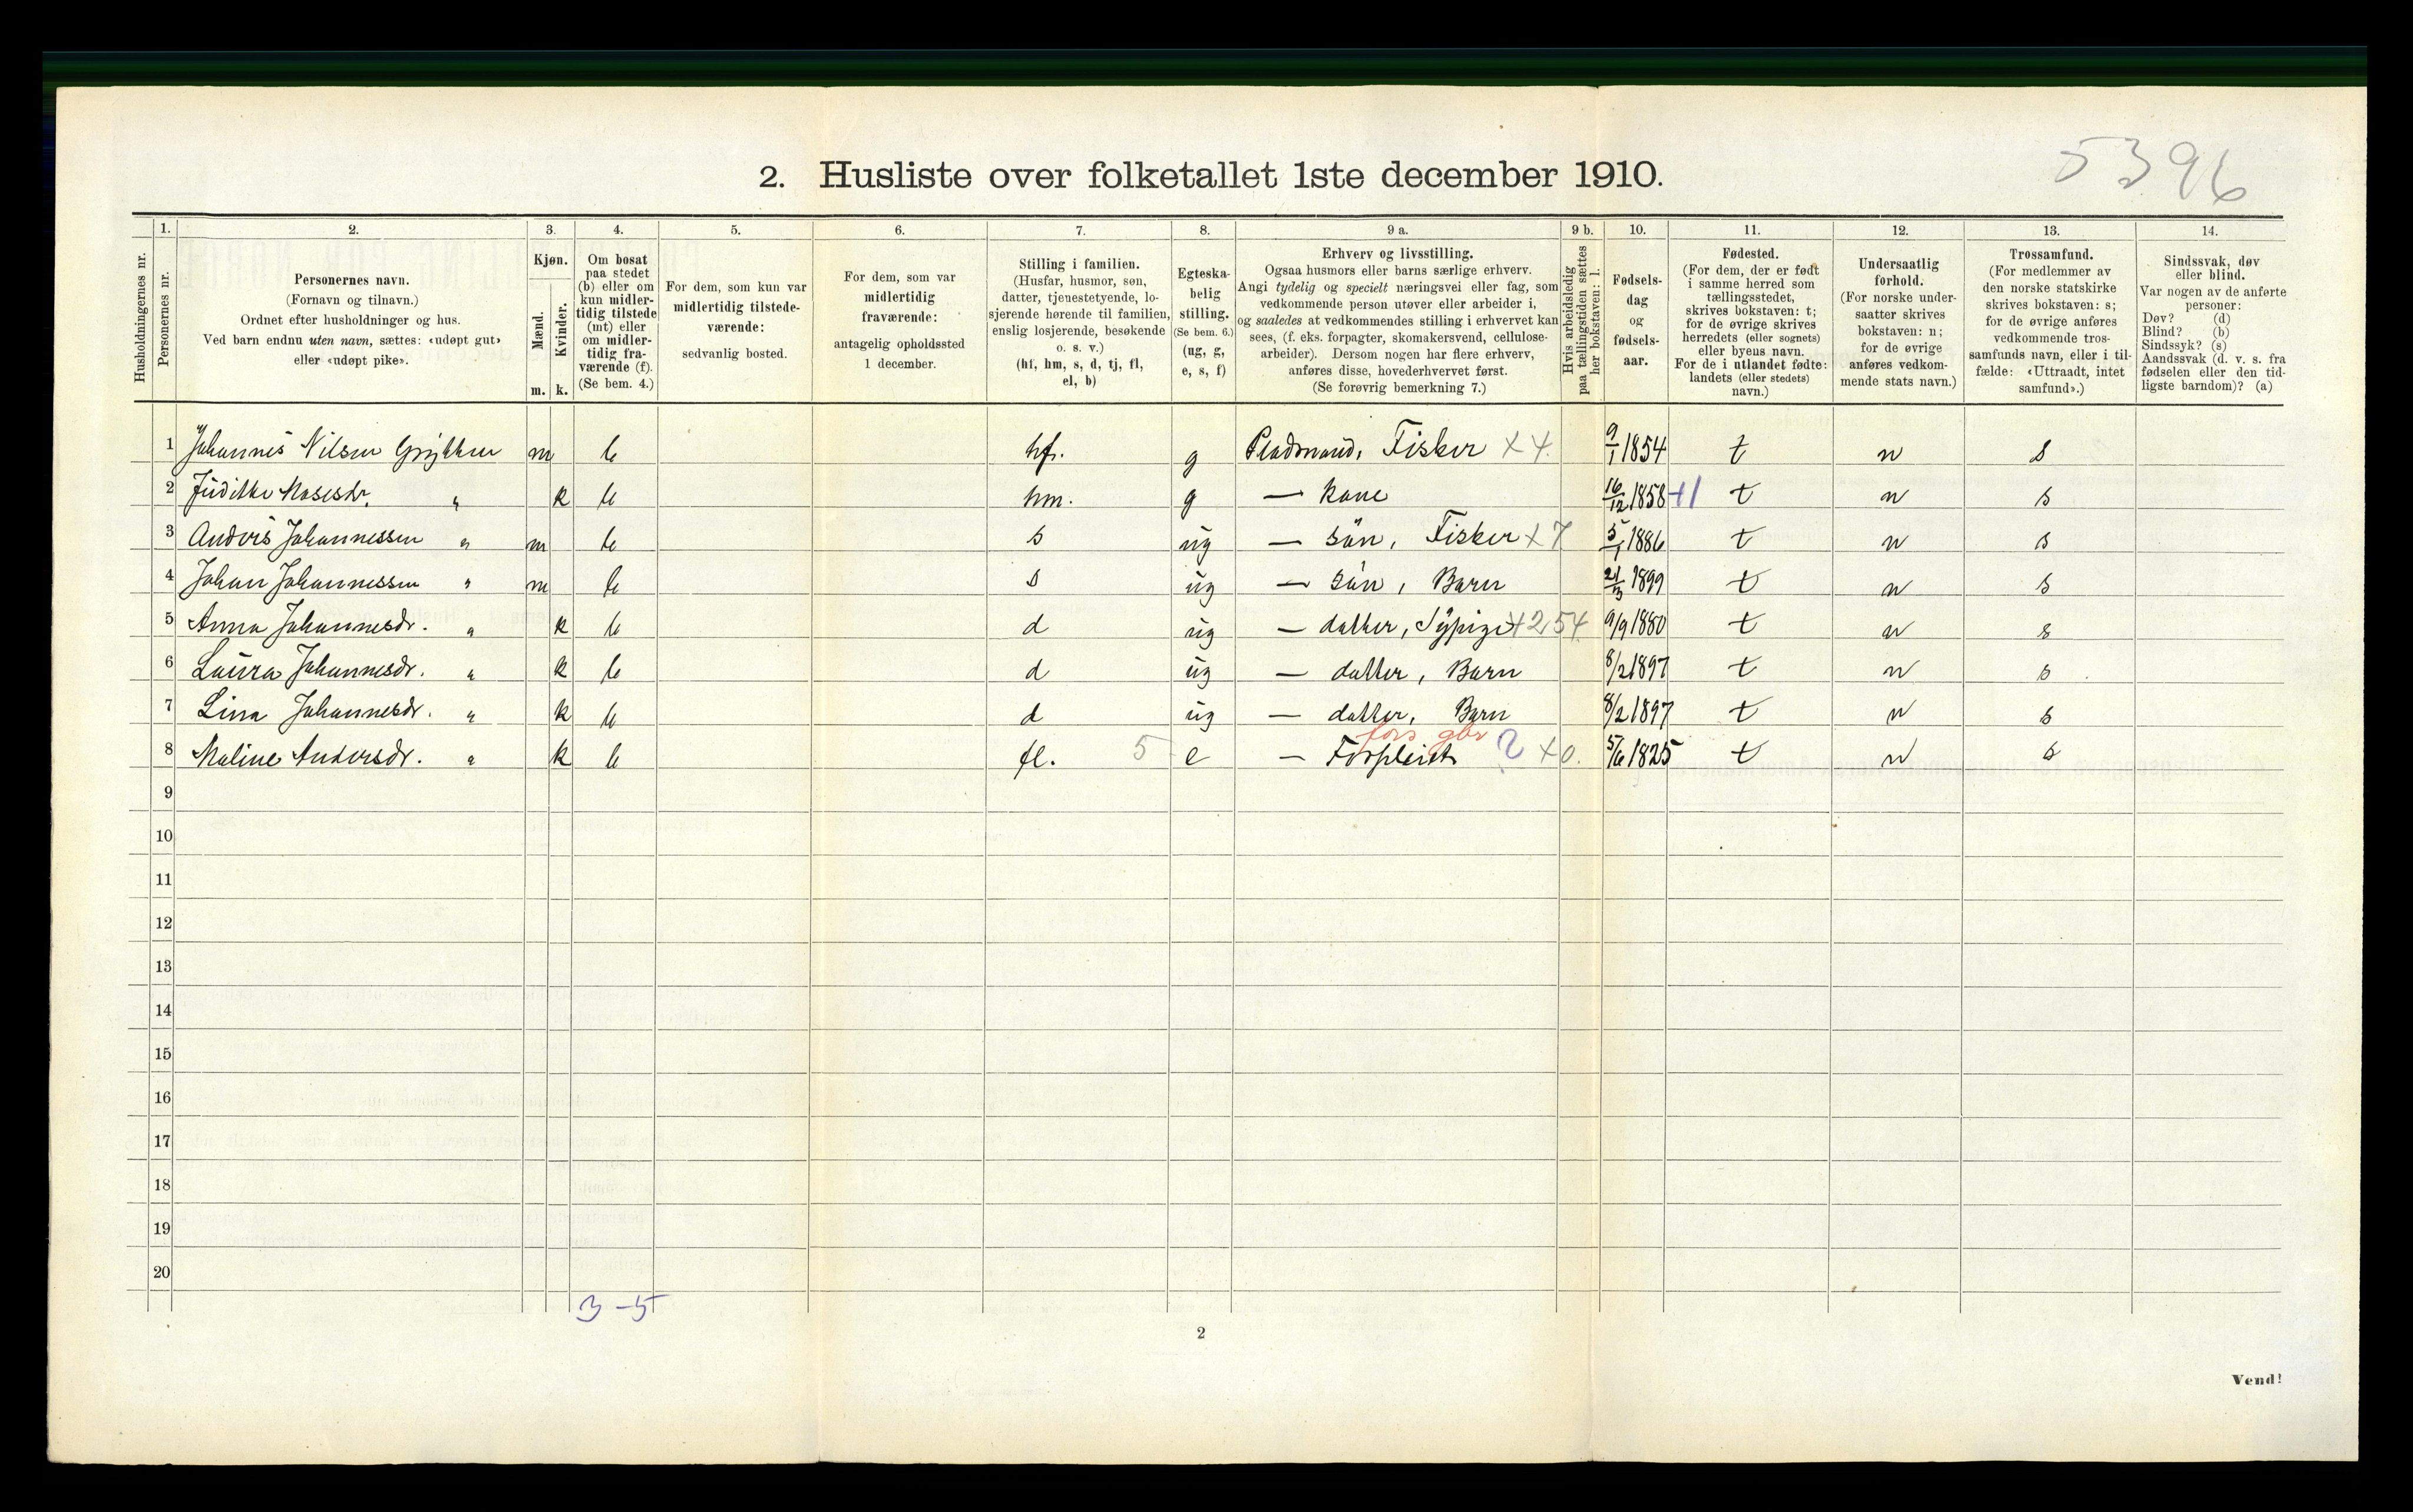 5396
2. Husliste over folketallet 1ste december 1910.
Husholdningernes nr.
1.
Personernes nr.
2.
Personernes navn.
(Fornavn og tilnavn.)
Ordnet efter husholdninger og hus.
Ved barn endnu uten navn, sættes: «udøpt gut»
eller «udøpt pike».
3.
Kjøn.
Mænd.
Kvinder.
m. k.
4.
Om bosat
paa stedet
(b) eller om
kun midler-
tidig tilstede
(mt) eller
om midler-
tidig fra-
værende (f).
(Se bem. 4.)
5.
For dem, som kun var
midlertidig tilstede-
værende:
sedvanlig bosted.
6.
For dem, som var
midlertidig
fraværende:
antagelig opholdssted
1 december.
7.
Stilling i familien.
(Husfar, husmor, søn,
datter, tjenestetyende, lo-
sjerende hørende til familien,
enslig losjerende, besøkende
o. s. v.)
(hf, hm, s, d, tj, fl,
el, b)
8.
Egteska-
belig
stilling.
(Se bem. 6.)
(ug, g,
e, s, f)
9 a.
Erhverv og livsstilling.
Ogsaa husmors eller barns særlige erhverv.
Angi tydelig og specielt næringsvei eller fag, som
vedkommende person utøver eller arbeider i,
og saaledes at vedkommendes stilling i erhvervet kan
sees, (f. eks. forpagter, skomakersvend, cellulose-
arbeider). Dersom nogen har flere erhverv,
anføres disse, hovederhvervet først.
(Se forøvrig bemerkning 7.)
9 b.
Hvis arbeidsledig
paa tællingstiden sættes
her bokstaven: l.
10.
Fødsels-
dag
og
fødsels-
aar.
11.
Fødested.
(For dem, der er født
i samme herred som
tællingsstedet,
skrives bokstaven: t;
for de øvrige skrives
herredets (eller sognets)
eller byens navn.
For de i utlandet fødte:
landets (eller stedets)
navn.)
12.
Undersaatlig
forhold.
(For norske under-
saatter skrives
bokstaven: n;
for de øvrige
anføres vedkom-
mende stats navn.)
13.
Trossamfund.
(For medlemmer av
den norske statskirke
skrives bokstaven: s;
for de øvrige anføres
vedkommende tros-
samfunds navn, eller i til-
fælde: «Uttraadt, intet
samfund».)
14.
Sindssvak, døv
eller blind.
Var nogen av de anførte
personer:
Døv? (d)
Blind? (b)
Sindssyk? (s)
Aandssvak (d. v. s. fra
fødselen eller den tid-
ligste barndom)? (a)
1 Johannes Nilsen m b hf. g Pladsmand, Fisker X 4. 9/1 1854 t n s
2 Judithe Mosesdr. " k b hm. g — kone 16/12 1858 +1 t n s
3 Anders Johannessen " m b s ug — søn, Fisker X 7 5/1 1886 t n s
4 Johan Johannessen " m b s ug — søn, Barn 21/3 1899 t n s
5 Anna Johannesdr. " k b d ug — datter, Sypige X 254 9/9 1880 t n s
6 Laura Johannesdr. " k b d ug — datter, Barn 8/2 1897 t n s
7 Lina Johannesdr. " k b d ug — datter, Barn 8/2 1897 t n s
8 Maline Andersdr. " k b fl. 5 e — Forpleiet ? X 0. 5/6 1825 t n s
9
10
11
12
13
14
15
16
17
18
19
20
3 - 5
2
Vend!